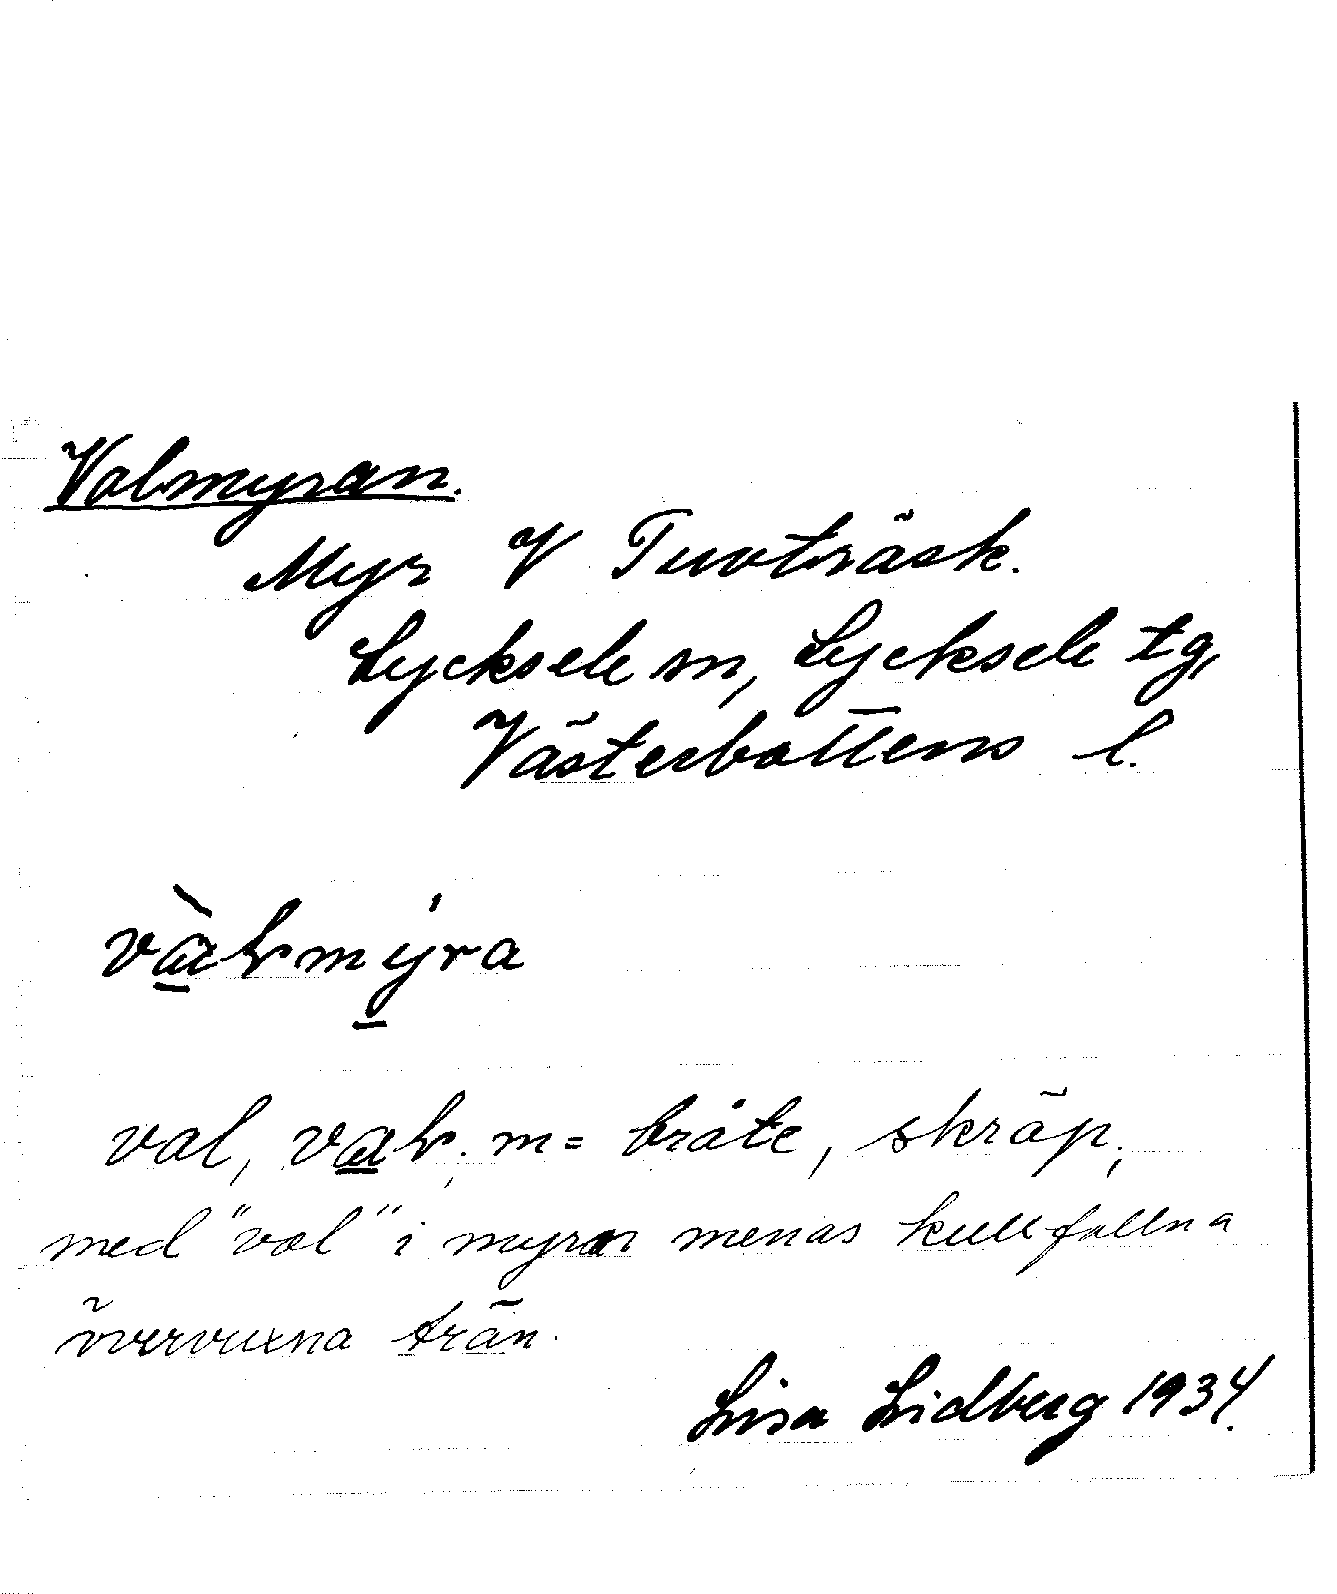 Valmyran.
Myr V Tuvträsk.
Lycksele sn, Lycksele tg,
Västerbottens l.
val, m = bråte, skräp;
med "val" i myran menas kullfallna
övervuxna trän.
Lisa Lidberg 1934.